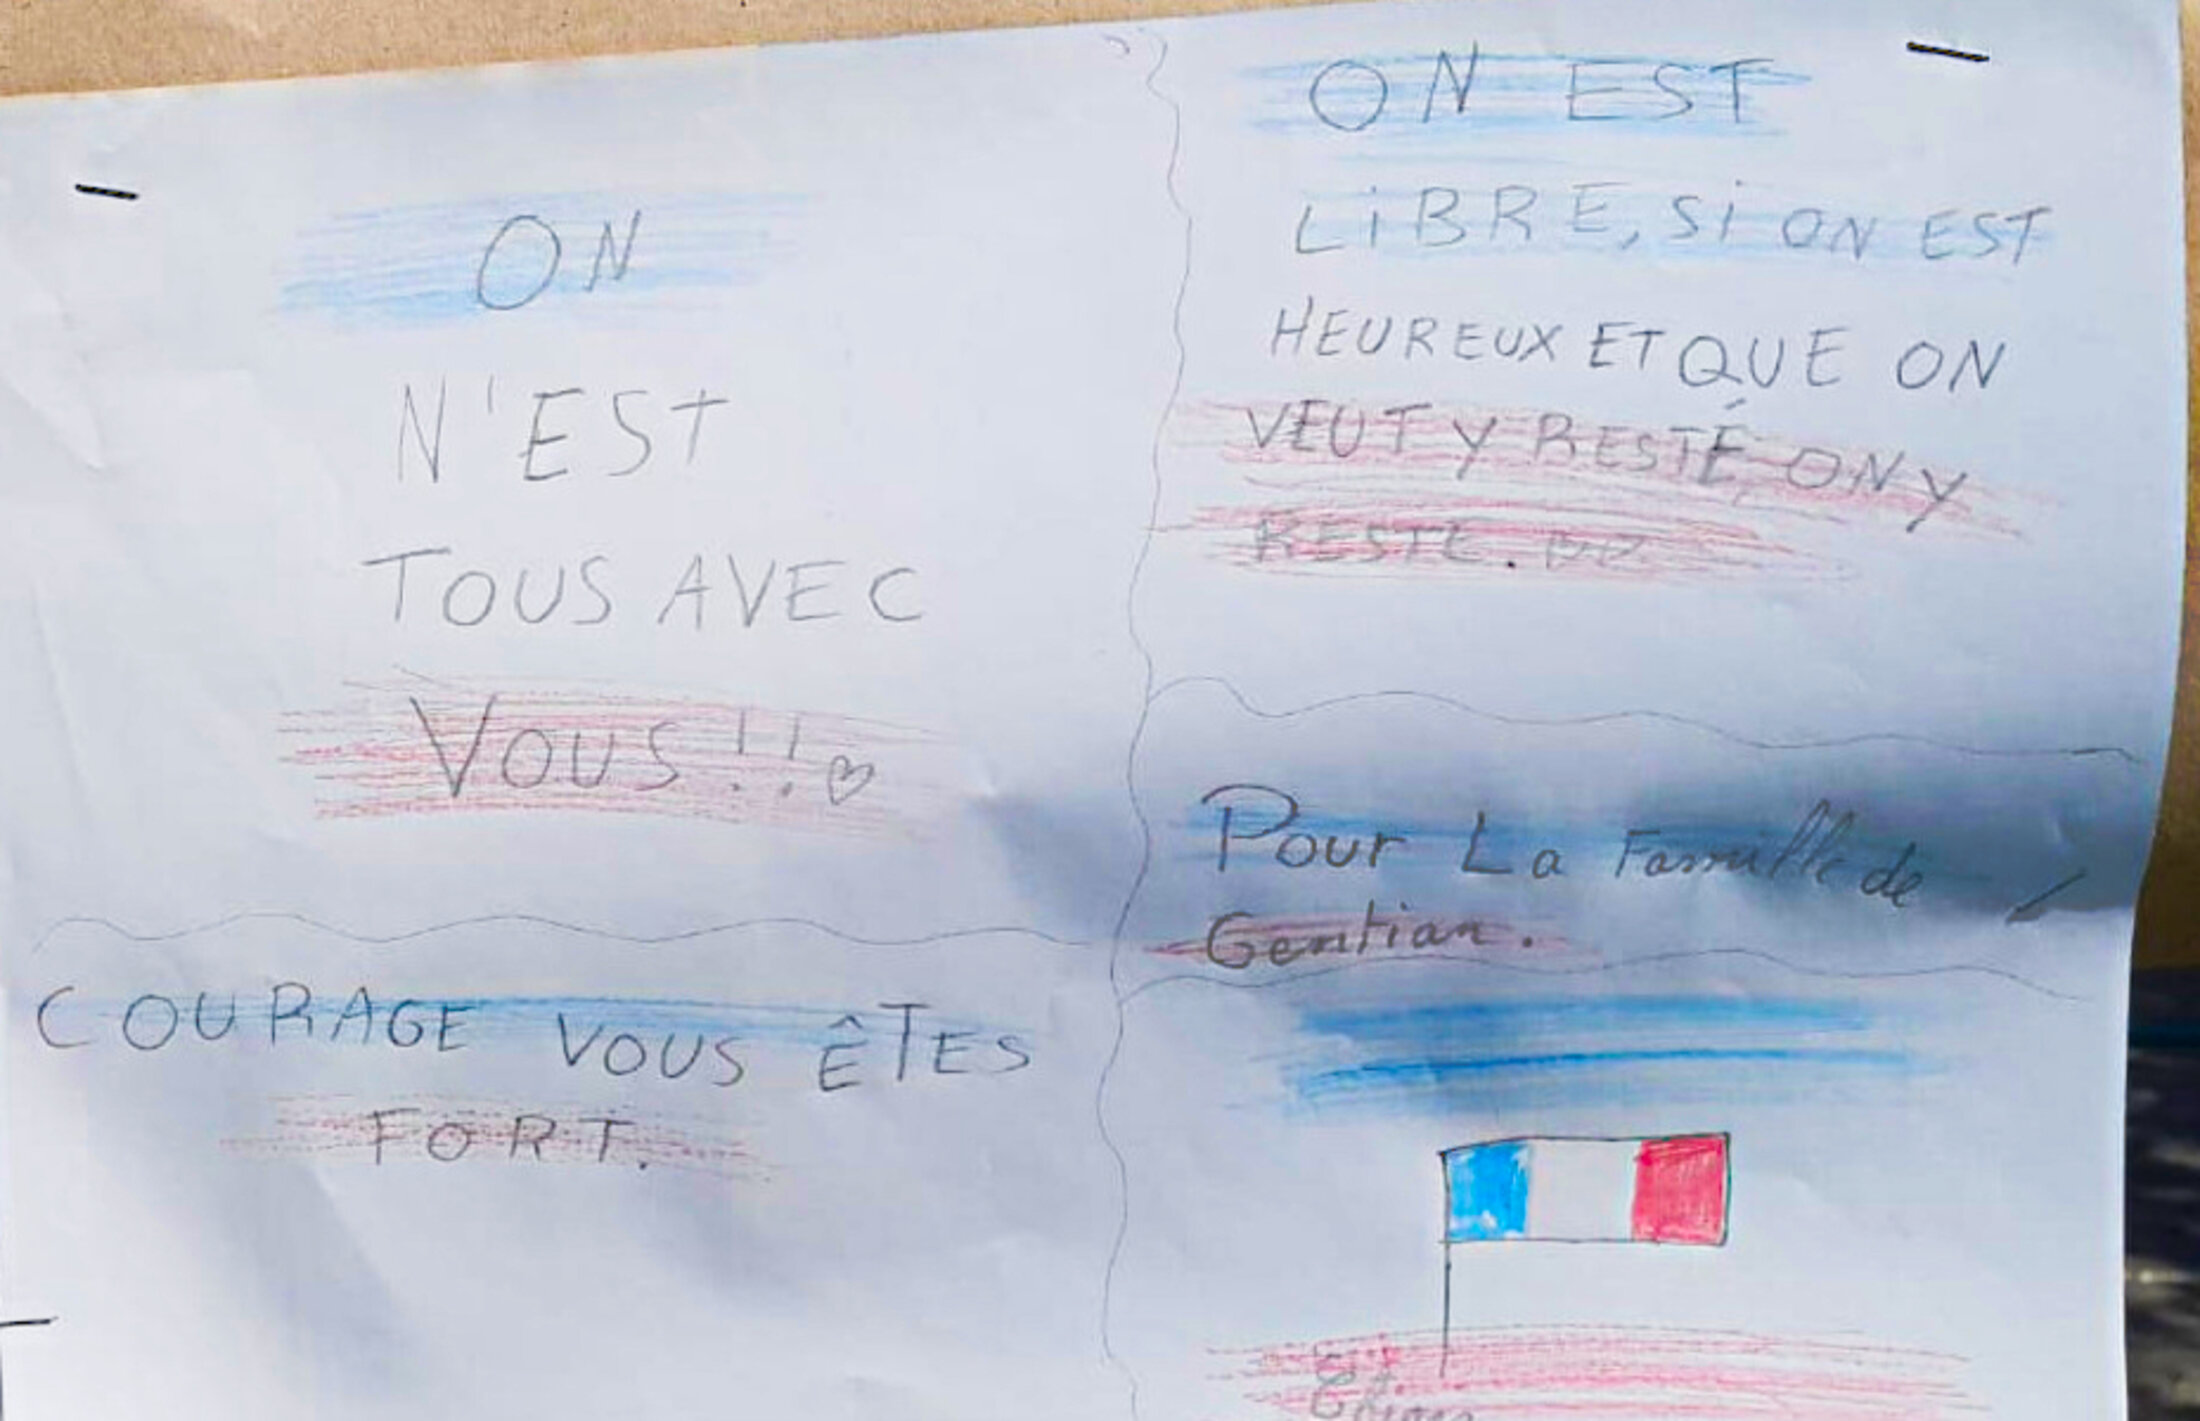 ON
N'EST
TOUS AVEC
VOUS!!
COURAGE VOUS ÊTES
FORT.
ON EST
LiBRE, Si ON EST
HEUREUX ET QUE ON
VEUT Y RESTÉ, ON Y
RESTE.
Pour La Famille de
Gentian.